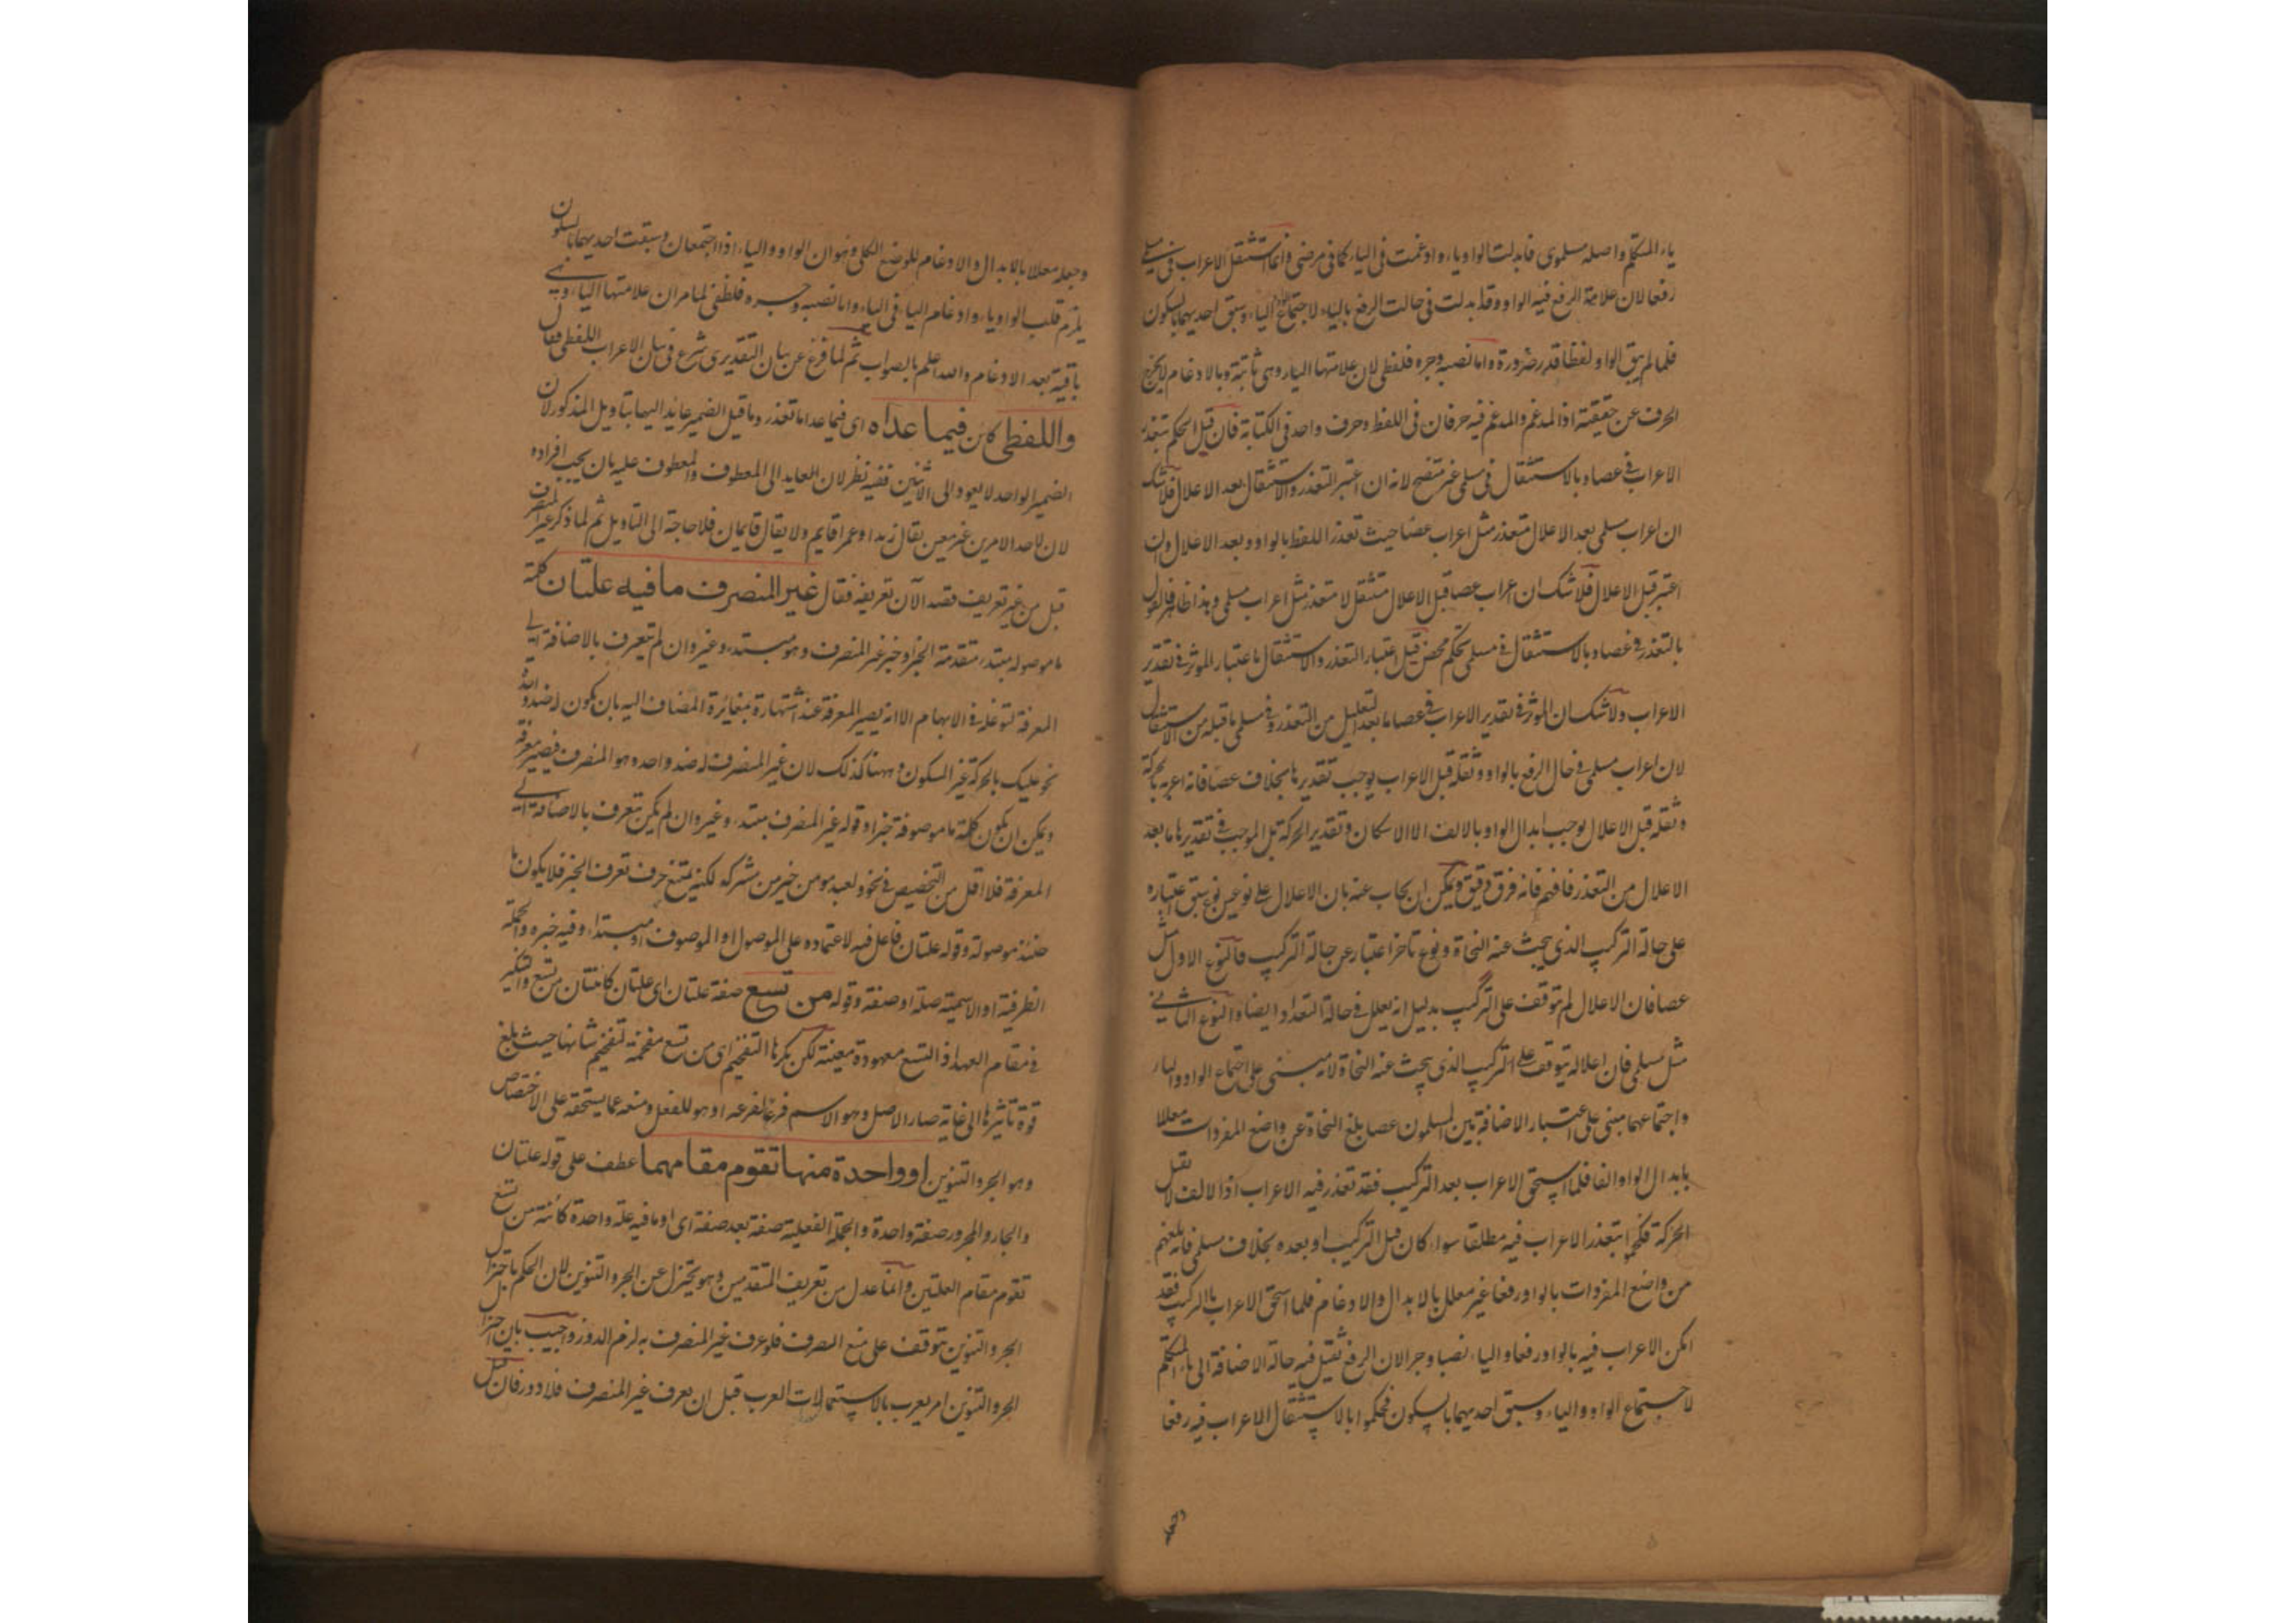 ياء المتكلم واصله مسلموى فابدلت الواو ياء وادغمت فى الياء كما فى مرضى وانما استثقل الاعراب فى مسلمى
رفعا لان علامة الرفع فيه الواو وقد بدلت فى حالت الرفع بالياء لاجتماع الياء وسبق احديهما بالسكون
فلما لم يبق الواو لفظا قدر ضرورة واما نصبه وجره فلفظى لان علامتها الياء وهى ثابتة وبالادغام لا يخرج
الحرف عن حقيقته اذ المدغم والمدغم فيه حرفان فى اللفظ وحرف واحد فى الكتابة فان قيل الحكم بتعذر
الاعراب فى عصا وبالاستثقال فى مسلمى غير متضح لانه ان اعتبر التعذر والاستثقال بعد الاعلال فلا شك
ان اعراب مسلمى بعد الاعلال متعذر مثل اعراب عصا حيث تعذر اللفظ بالواو وبعد الاعلال وان
اعتبر قبل الاعلال فلا شك ان اعراب عصا قبل الاعلال مستثقل لا متعذر مثل اعراب مسلمى وهذا ظاهر فالقول
بالتعذر فى عصا وبالاستثقال فى مسلمى تحكم محض قيل اعتبار التعذر والاستثقال باعتبار الموثر فى تقدير
الاعراب ولا شك ان الموثر فى تقدير الاعراب فى عصا ما بعد التعليل من التعذر وفى مسلمى ما قبله من الاستثقال
لان اعراب مسلمى فى حال الرفع بالواو وثقله قبل الاعراب يوجب تقديرها بخلاف عصا فانه اعرب بالحركة
وثقله قبل الاعلال يوجب ابدال الواو بالالف الا الاسكان وتقدير الحركة بل الموجب فى تقديرها ما بعد
الاعلال من التعذر فافهم فانه فرق دقيق ويمكن ان يجاب عنه بان الاعلال على نوعين نوع سبق اعتباره
على حالة التركيب الذى يبحث عنه النحاة ونوع تاخر اعتباره عن حالة التركيب فالنوع الاول مثل
عصا فان الاعلال لم يتوقف على التركيب بدليل انه يعلل فى حالة التعداد ايضا والنوع الثانى
مثل مسلمى فان اعلاله يتوقف على التركيب الذى يبحث عنه النحاة لانه مبنى على اجتماع الواو والياء
واجتماعهما مبنى على اعتبار الاضافة بين المسلمون عصا بلغ النحاة عن واضع المفردات معللا
بابدال الواو الفا فلما استحق الاعراب بعد التركيب فقد تعذر فيه الاعراب اذ الالف لا تقبل
الحركة فحكموا بتعذر الاعراب فيه مطلقا سواء كان قبل التركيب او بعده بخلاف مسلمى فانه بلغهم
من واضع المفردات بالواو رفعا غير معلل بالابدال والادغام فلما استحق الاعراب بالتركيب فقد
امكن الاعراب فيه بالواو رفعا والياء نصبا وجرا الا ان الرفع ثقيل فيه حالة الاضافة الى ياء المتكلم
لاجتماع الواو والياء وسبق احديهما بالسكون فحكموا بالاستثقال الاعراب فيه رفعا
وجعله
وجعله معللا بالابدال والادغام للوضع الكلى وهو ان الواو والياء اذا اجتمعتا وسبقت احديهما بالسكون
يلزم قلب الواو ياء وادغام الياء فى الياء واما نصبه وجره فلفظى لما مر ان علامتها الياء وهى
باقية بعد الادغام والله اعلم بالصواب ثم لما فرغ عن بيان التقديرى شرع فى بيان الاعراب اللفظى فقال
واللفظى كائن فيما عداه اى فيما عدا ما تعذر وما قيل الضمير عايد اليهما بتاويل المذكور لان
الضمير الواحد لا يعود الى الاثنين ففيه نظر لان العايد الى المعطوف والمعطوف عليه بان يجب افراده
لان لاحد الامرين غير معين يقال زيد او عمر قايم ولا يقال قايمان فلا حاجة الى التاويل ثم لما ذكر غير المنصرف
قبل من غير تعريف قصد الآن تعريفه فقال غير المنصرف ما فيه علتان كلمة
ما موصولة مبتداء متقدمة الخبر او خبر غير المنصرف وهو مبتداء وغير وان لم يتعرف بالاضافة الى
المعرفة لتوغله فى الابهام الا انه يصير المعرفة عند اشتهاره بمغائرة المضاف اليه بان يكون له ضد واحد
نحو عليك بالحركة غير السكون وههنا كذلك لان غير المنصرف له ضد واحد وهو المنصرف فيصير معرفة
ويمكن ان يكون كلمة ما موصوفة خبرا وقوله غير المنصرف مبتداء وغير وان لم يكن يتعرف بالاضافة الى
المعرفة فلا اقل من التخصيص فى نحو ولعبد مومن خير من مشرك لكنه يمتنع تعرف الخبر فلا يكون ما
حينئذ موصولة وقوله علتان فاعل فيه لاعتماده على الموصول او الموصوف او مبتداء وفيه خبره والجملة
الظرفية او الاسمية صلة او صفة وقوله من تسع صفة علتان اى علتان كائنتان من تسع والتنكير
فى مقام العهد اذ التسع معهودة معينة لكن نكرها التفخيم اى من تسع مفخمة لتفخيم شانها حيث بلغ
قوة تاثيرها الى غاية صار الاصل وهو الاسم فرعا لفرعه او هو للفعل ومنعه عما يستحقه على الاختصاص
وهو الجر والتنوين او واحدة منها تقوم مقامهما عطف على قوله علتان
والجار والمجرور صفة واحدة والجملة الفعلية صفة بعد صفة اى او ما فيه علة واحدة كائنة من تسع
تقوم مقام العلتين وانما عدل من تعريف المتقدمين وهو يختزل عن الجر والتنوين لان الحكم باختزال
الجر والتنوين يتوقف على منع الصرف فلو عرف غير المنصرف به لزم الدور واجيب بان اختزال
الجر والتنوين امر يعرب بالاستعمالات العرب قبل ان يعرف غير المنصرف فلا دور فان قيل